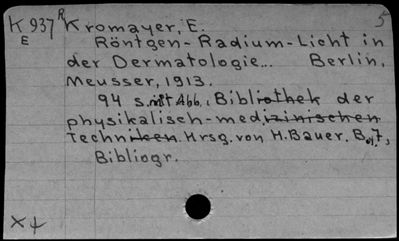 5
K 937 R Kromayer, E.
E
Röntgen-Radium-Licht in
der Dermatologie... Berlin,
Meusser, 1913.
94 s. mit Abb., Bibliothek der
physikalisch-medizinischen
Techniken Hrsg. von H. Bauer. B. 7,
Bibliogr.